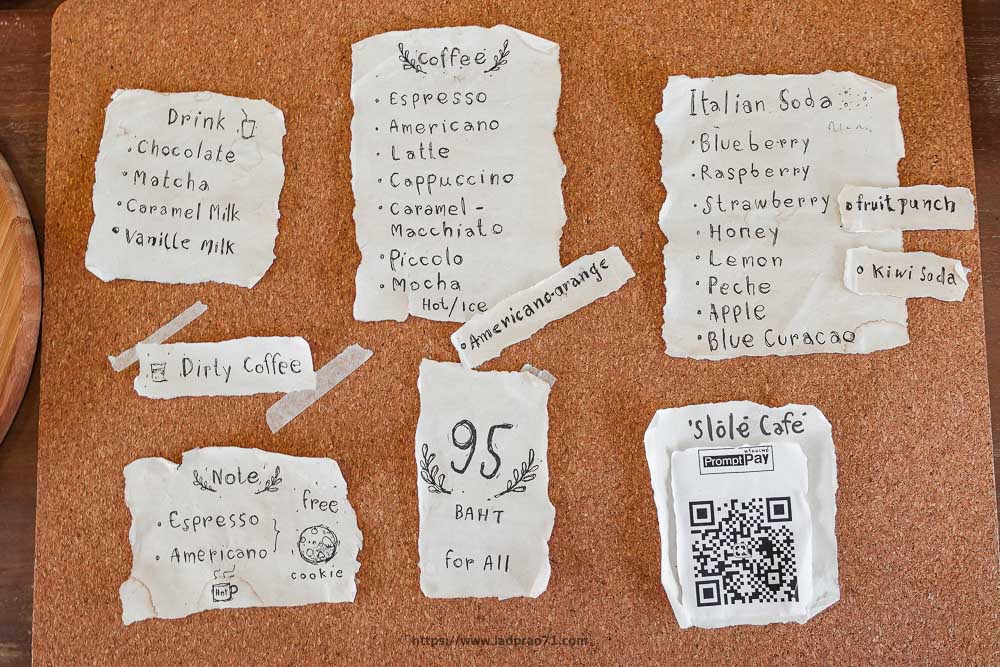 Drink
• Chocolate
• Matcha
• Caramel Milk
• Vanille Milk
Coffee
• Espresso
• Americano
• Latte
• Cappuccino
• Caramel-
Macchiato
• Piccolo
• Mocha
Hot/Ice
• Americano-orange
Italian Soda
• Blueberry
• Raspberry
• Strawberry
• Honey
• Lemon
• Peche
• Apple
• Blue Curacao
• fruit punch
• Kiwi Soda
Dirty Coffee
Note
• Espresso
• Americano
free
cookie
Hot
95
BAHT
for All
'Slólé Cafe'
PromptPay
https://www.ladprao71.com